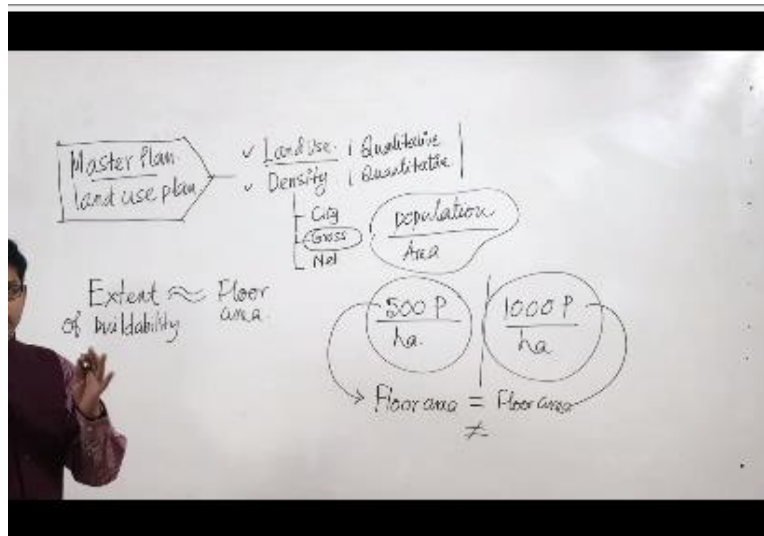 Master Plan
land use plan
✓ Land Use | Qualitative
✓ Density | Quantitative
City
Gross
Net
population
Area
Extent ≈ Floor
of buildability area.
500 P
ha.
1000 P
ha
Floor area = Floor area
≠